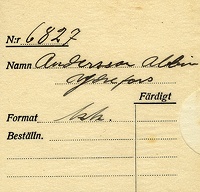 N:r 6827
Namn Andersson Albin
Ydrefors
Färdigt
Format kk.
Beställn.